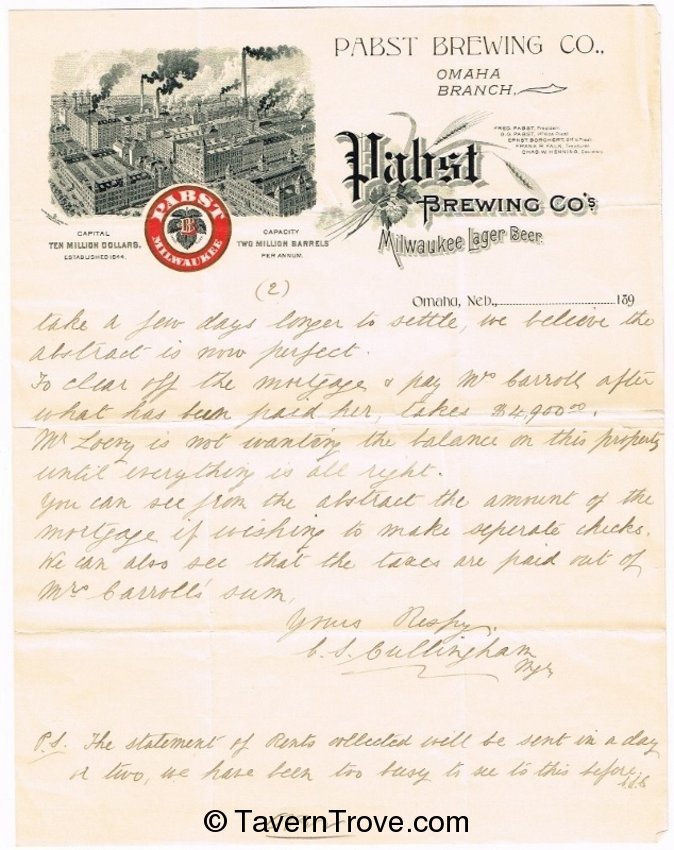 PABST BREWING CO.,
OMAHA
BRANCH,
FRED. PABST, President.
ERNST BORCHERT,
FRANK R. FALK, Treasurer.
CHAS. W. HENNING, Secretary.
Pabst
BREWING CO'S
Milwaukee Lager Beer.
PABST
B
MILWAUKEE
CAPITAL
TEN MILLION DOLLARS.
ESTABLISHED 1844.
CAPACITY
TWO MILLION BARRELS
PER ANNUM.
(2)
Omaha, Neb., 189
take a few days longer to settle, we believe the
abstract is now perfect.
To clear off the mortgage & pay Mrs Carroll after
what has been paid her, takes $4,900.00.
Mr is not wanting the balance on this property
until everything is all right.
You can see from the abstract the amount of the
mortgage if wishing to make seperate checks.
We can also see that the taxes are paid out of
Mrs Carroll's sum,
Yours Respy.
C. S. Cullingham
Mgr
P.S. The statement of Rents collected will be sent in a day
or two, we have been too busy to see to this before.
© TavernTrove.com